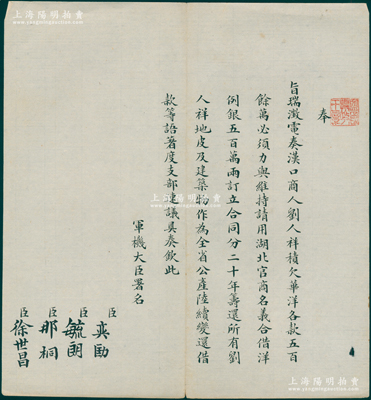 上海陽明拍賣
www.ymauction.com
奉
旨瑞澂電奏漢口商人劉人祥積欠華洋各款五百
餘萬必須力與維持請用湖北官商名義合借洋
例銀五百萬兩訂立合同分二十年籌還所有劉
人祥地皮及建築物作為全省公產陸續變還借
款等語著度支部速議具奏欽此
軍機大臣署名
臣奕劻
臣毓朗
臣那桐
臣徐世昌
上海陽明拍賣